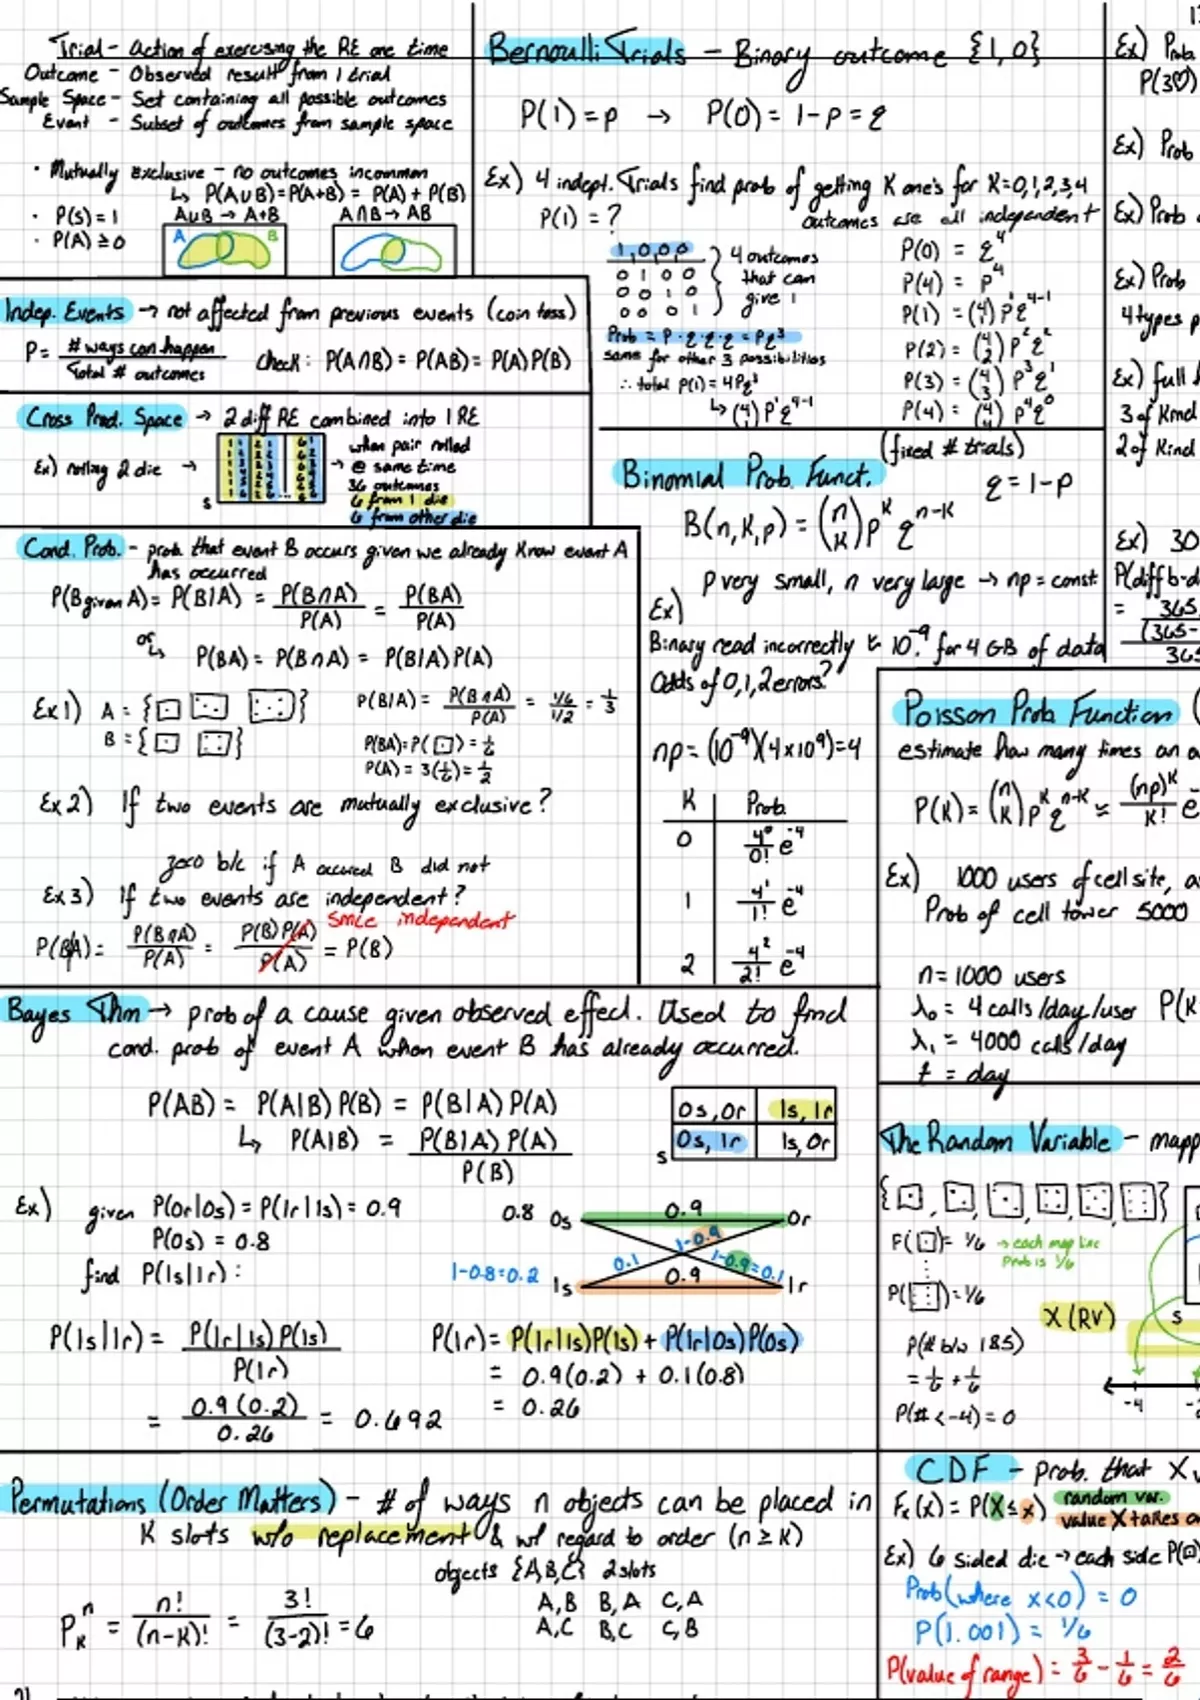 Trial - Action of exercising the RE one time
Outcome - Observed result from 1 trial
Sample Space - Set containing all possible outcomes
Event - Subset of outcomes from sample space
· Mutually exclusive - no outcomes incommon
↳ P(A∪B)=P(A+B) = P(A) + P(B)
· P(S) = 1
A∪B → A+B
A∩B → AB
· P(A) ≥ 0
A
B
Indep. Events → not affected from previous events (coin toss)
P = # ways can happen / Total # outcomes
check: P(A∩B) = P(AB) = P(A)P(B)
Cross Prod. Space → 2 diff RE combined into 1 RE
Ex) rolling 2 die →
S
→ when pair rolled
@ same time
36 outcomes
6 from 1 die
6 from other die
Cond. Prob. - prob that event B occurs given we already know event A
has occurred
P(B given A) = P(B|A) = P(B∩A)/P(A) = P(BA)/P(A)
or ↳ P(BA) = P(B∩A) = P(B|A)P(A)
Ex1) A = {⚀ ⚂ ⚄}
B = {⚀ ⚁}
P(B|A) = P(B∩A)/P(A) = 1/6 / 1/2 = 1/3
P(BA) = P(⚀) = 1/6
P(A) = 3(1/6) = 1/2
Ex2) If two events are mutually exclusive?
zero b/c if A occured B did not
Ex3) If two events are independent?
since independent
P(B|A) = P(B∩A)/P(A) = P(B)P(A)/P(A) = P(B)
Bayes Thm → prob of a cause given observed effect. Used to find
cond. prob of event A when event B has already occurred.
P(AB) = P(A|B)P(B) = P(B|A)P(A)
↳ P(A|B) = P(B|A)P(A)/P(B)
0s,0r 1s,1r
0s,1r 1s,0r
S
Ex) given P(0r|0s) = P(1r|1s) = 0.9
P(0s) = 0.8
find P(1s|1r):
0.8 0s 0.9 0r
0.1 1-0.9
1-0.9=0.1
1-0.8=0.2 1s 0.9 1r
P(1s|1r) = P(1r|1s)P(1s)/P(1r)
= 0.9(0.2)/0.26 = 0.692
P(1r) = P(1r|1s)P(1s) + P(1r|0s)P(0s)
= 0.9(0.2) + 0.1(0.8)
= 0.26
Permutations (Order Matters) - # of ways n objects can be placed in
K slots w/o replacement & w/ regard to order (n ≥ K)
objects {A,B,C} 2 slots
A,B B,A C,A
A,C B,C C,B
P n K = n!/(n-K)! = 3!/(3-2)! = 6
Bernoulli Trials - Binary outcome {1,0}
P(1) = p → P(0) = 1-p = q
Ex) 4 indept. Trials find prob of getting K one's for K=0,1,2,3,4
P(1) = ?
outcomes are all independent
1,0,0,0
0 1 0 0
0 0 1 0
0 0 0 1
4 outcomes
that can
give 1
Prob = p·q·q·q = pq³
same for other 3 possibilities
∴ total P(1) = 4pq³
↳ (4 1) p¹q⁴⁻¹
P(0) = q⁴
P(4) = p⁴
P(1) = (4 1) p¹q⁴⁻¹
P(2) = (4 2) p²q²
P(3) = (4 3) p³q¹
P(4) = (4 4) p⁴q⁰
Binomial Prob. Funct. (fixed # trials)
q = 1-p
B(n,K,p) = (n K) p^K q^n-K
p very small, n very large → np = const
Ex)
Binary read incorrectly is 10⁻⁹ for 4 GB of data
Odds of 0,1,2 errors?
np = (10⁻⁹)(4×10⁹) = 4
K Prob.
0 4⁰/0! e⁻⁴
1 4¹/1! e⁻⁴
2 4²/2! e⁻⁴
Ex) Prob
P(3♡)
Ex) Prob
Ex) Prob
Ex) Prob
4 types
Ex) full
3 of Kind
2 of Kind
Ex) 30
P(diff b-d
= 365
(365-
365
Poisson Prob Function (
estimate how many times an
P(K) = (n K) p^K q^n-K ≈ (np)^K/K! e
Ex) 1000 users of cell site,
Prob of cell tower 5000
n = 1000 users
λ₀ = 4 calls/day/user
λ₁ = 4000 calls/day
t = day
P(K
The Random Variable - mapp
{⚀, ⚁, ⚂, ⚃, ⚄, ⚅}
P(⚀) = 1/6 → each map line
Prob is 1/6
P(⚅) = 1/6
X (RV)
S
P(# b/w 1&5)
= 1/6 + 1/6
P(# < -4) = 0
-4
CDF - prob. that X
Fx(x) = P(X ≤ x) random var.
value X takes on
Ex) 6 sided die → each side P(⚀)
Prob(where x<0) = 0
P(1.001) = 1/6
P(value of range) = 3/6 - 1/6 = 2/6